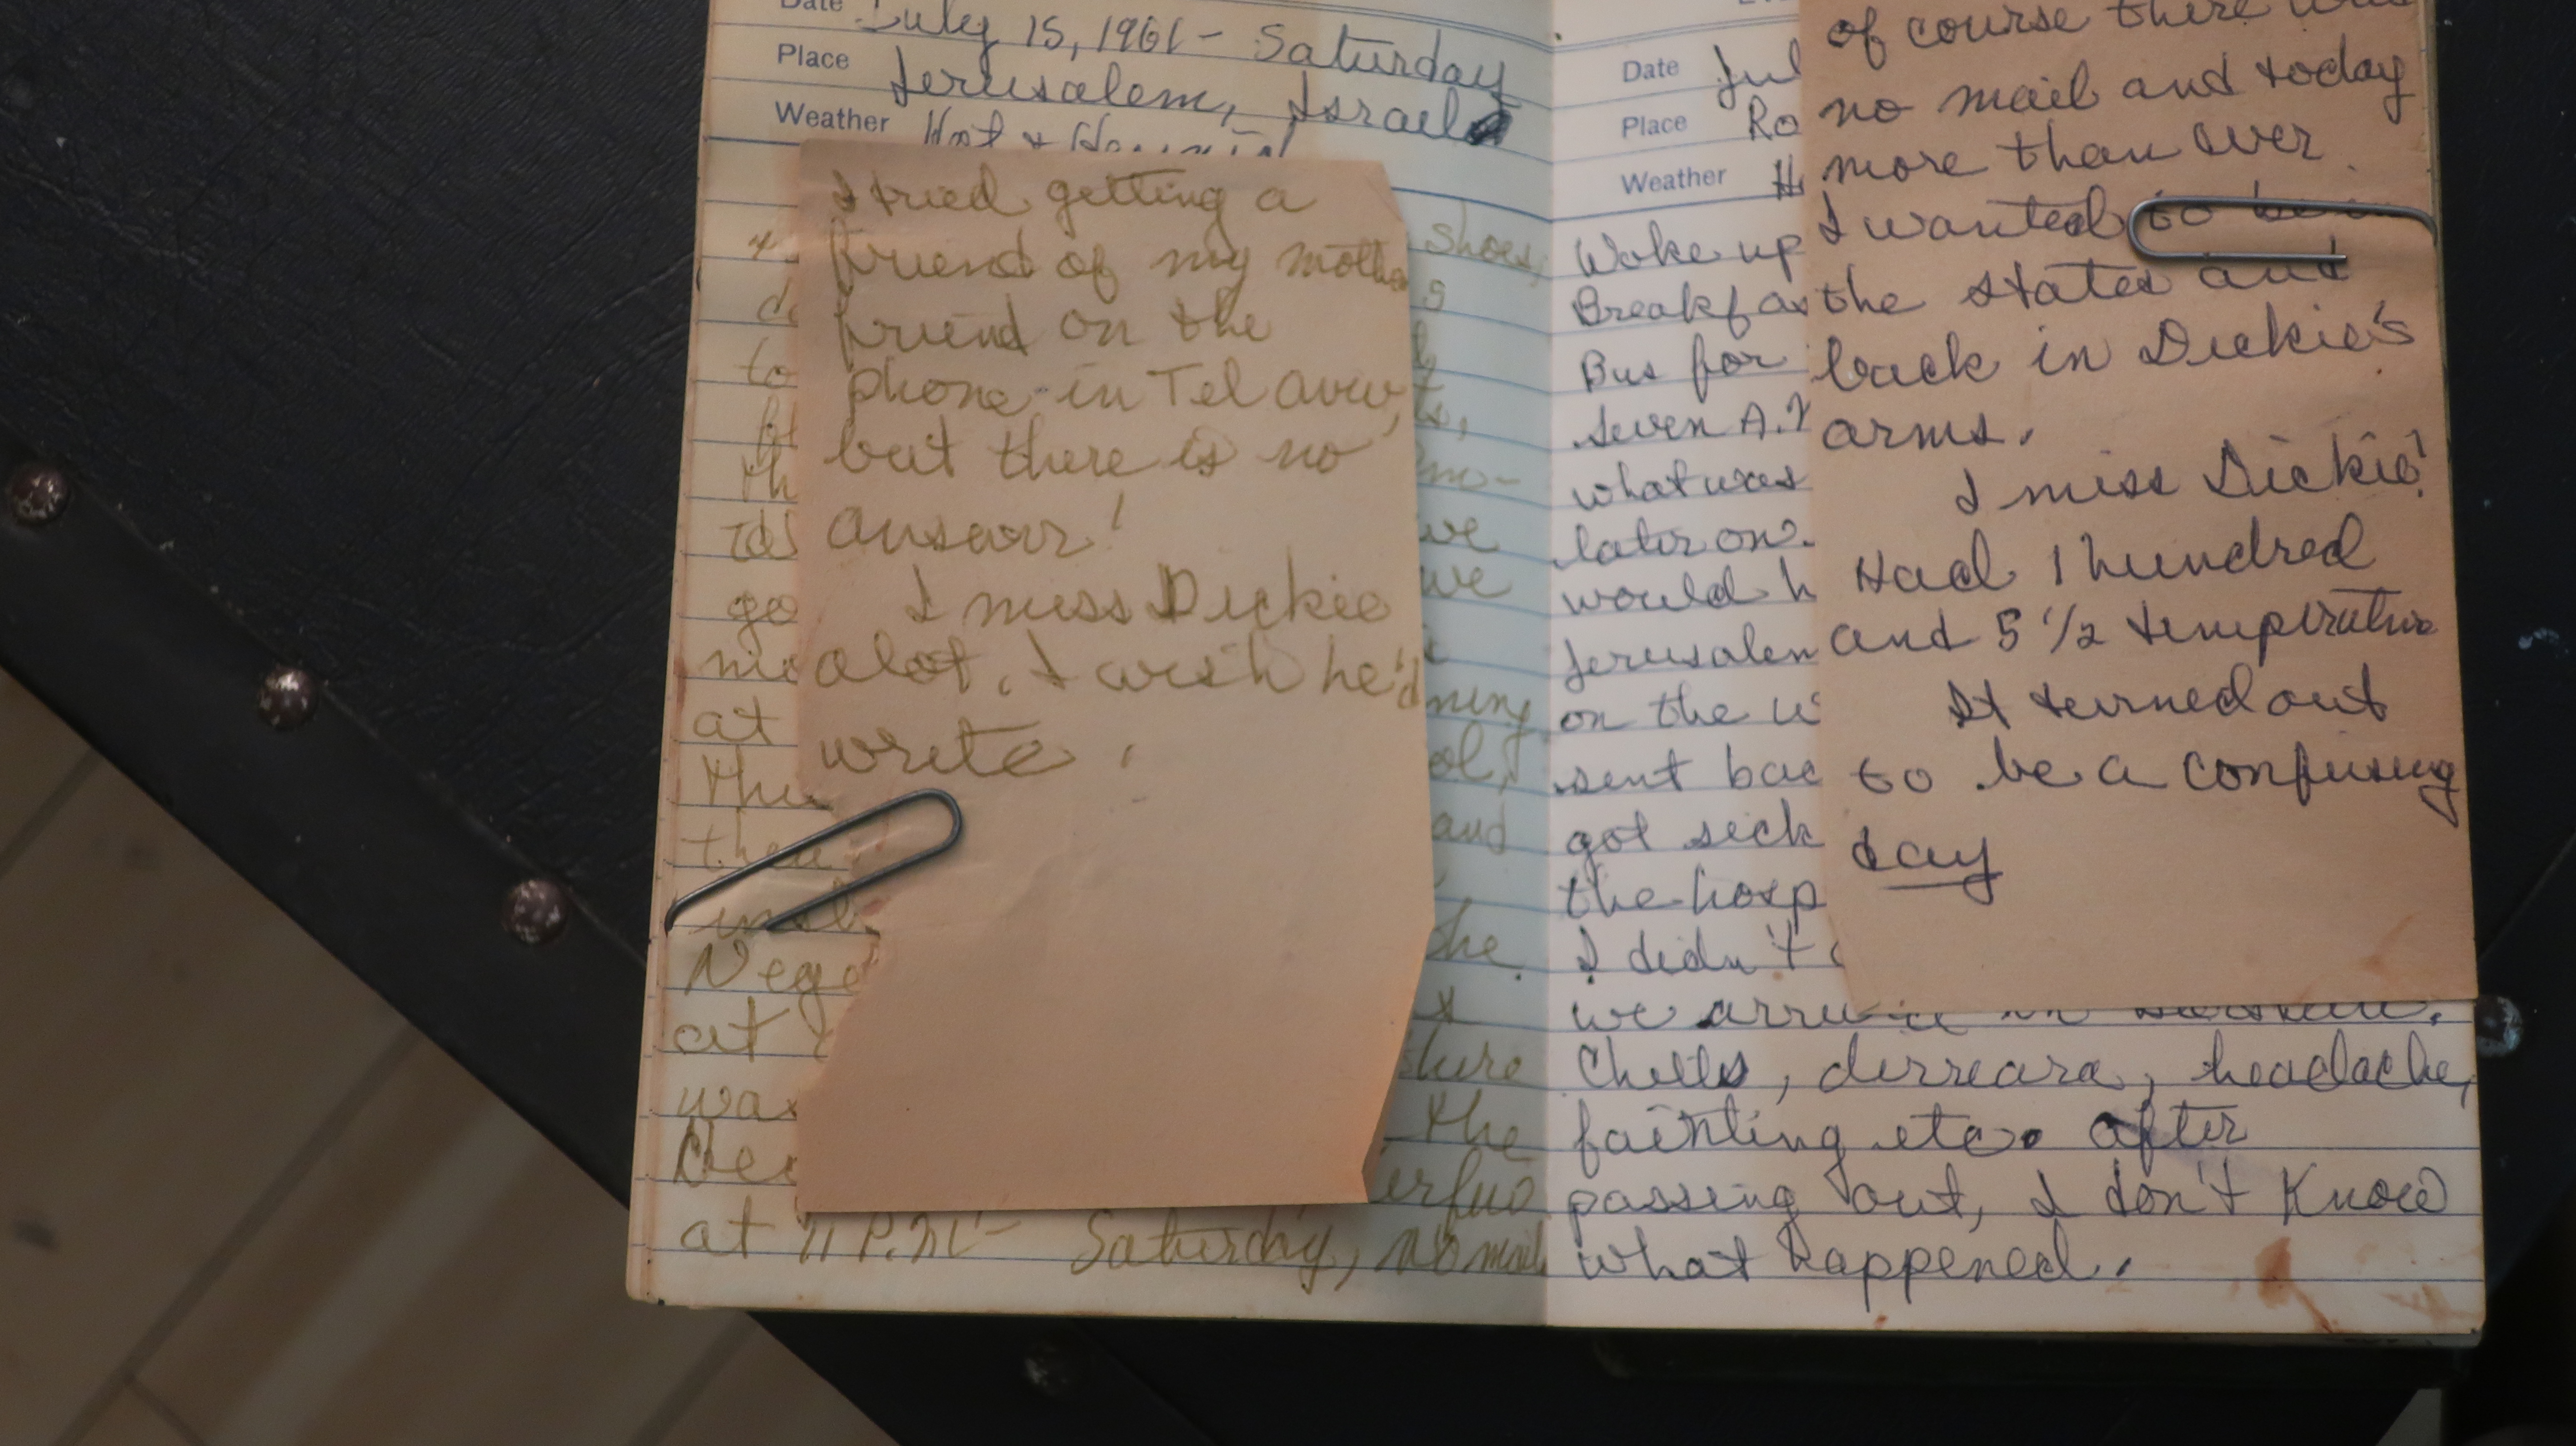 Date July 15, 1961 - Saturday
Place Jerusalem, Israel
Weather Hot &
I tried getting a
friend of my mothers
friend on the
phone in Tel Aviv,
but there is no
answer!
I miss Dickie
alot. I wish he'd
write.
shoes,
to
go
at
we
we
ning
and
the
Nege
at
was
the
at 11 P.M- Saturday, no mail
Date Jul
Place Ro
Weather H
Woke up
Breakfas
Bus for
seven A.M
what was
later on.
would h
Jerusalem
on the w
sent bac
got sick
the hosp
I didn't
we
Chills, dirreara, headache,
fainting etc. after
passing out, I don't know
what happened.
of course there was
no mail and today
more than ever
I wanted to be in
the states and
back in Dickie's
arms.
I miss Dickie!
Had 1 hundred
and 5 1/2 temperature
It turned out
to be a confusing
day